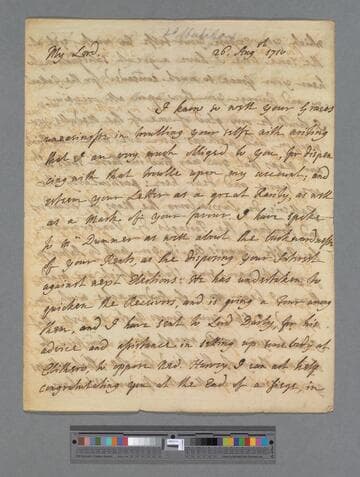 My Lord.
26. Aug.st 1710
I know so well your Graces
uneasinesse in troubling your selfe with writing
that I am very much obliged to you, for dispen
cing with that trouble upon my account, and
esteem your Letter as a great Rarity, as well
as a Mark of your favour. I have spoke
to Mr Dummer as well about the backwardnesse
of your Rents, as the disposing your Interest
against next Elections: He has undertaken to
quicken the Receivers, and is going a Tour among
them, and I have sent to Lord Darby, for his
advice and assistance in setting up some body at
Clithero, to oppose Ned. Harvey. I can not help
congratulating you at the End of a Siege, in